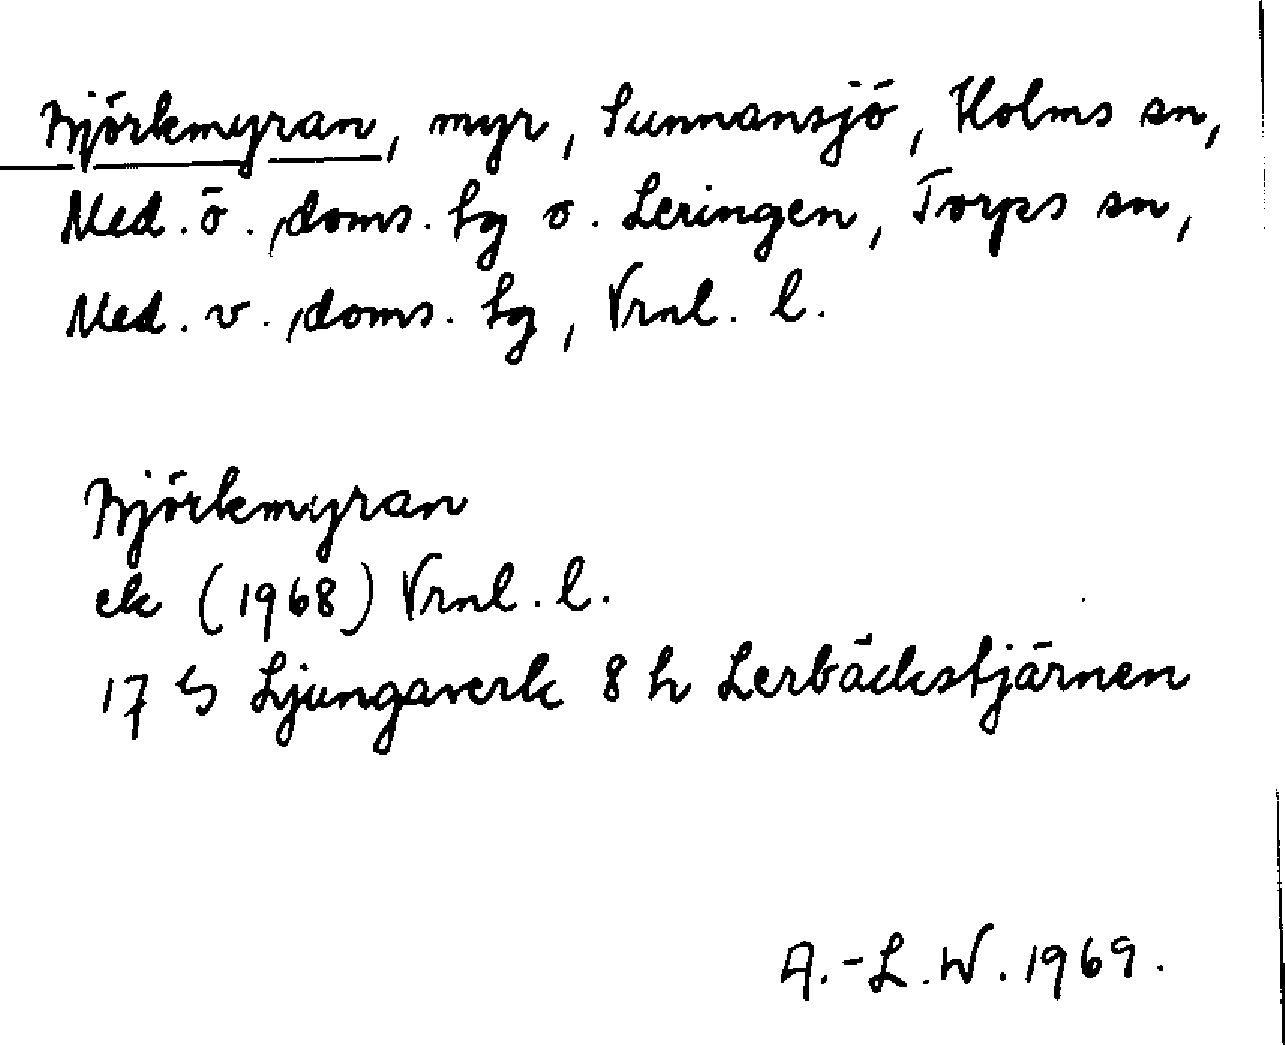 Björkmyran, myr, Sunnansjö, Holms sn,
Med. ö. doms. tg o. Leringen, Torps sn,
Med. v. doms. tg, Vrnl. l.
Björkmyran
ek (1968) Vrnl. l.
17 G Ljungaverk 8 h Lerbäckstjärnen
A.-L. W. 1969.